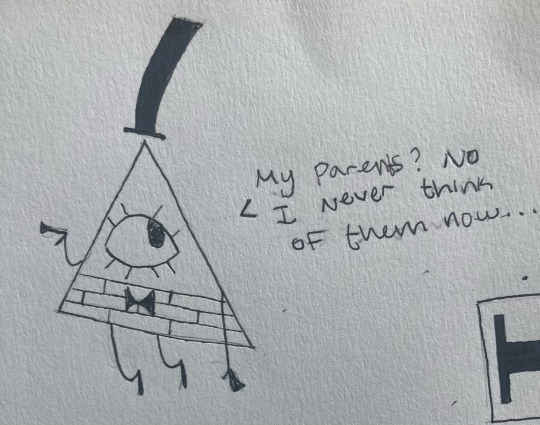 My parents? No
< I never think
of them now...
I